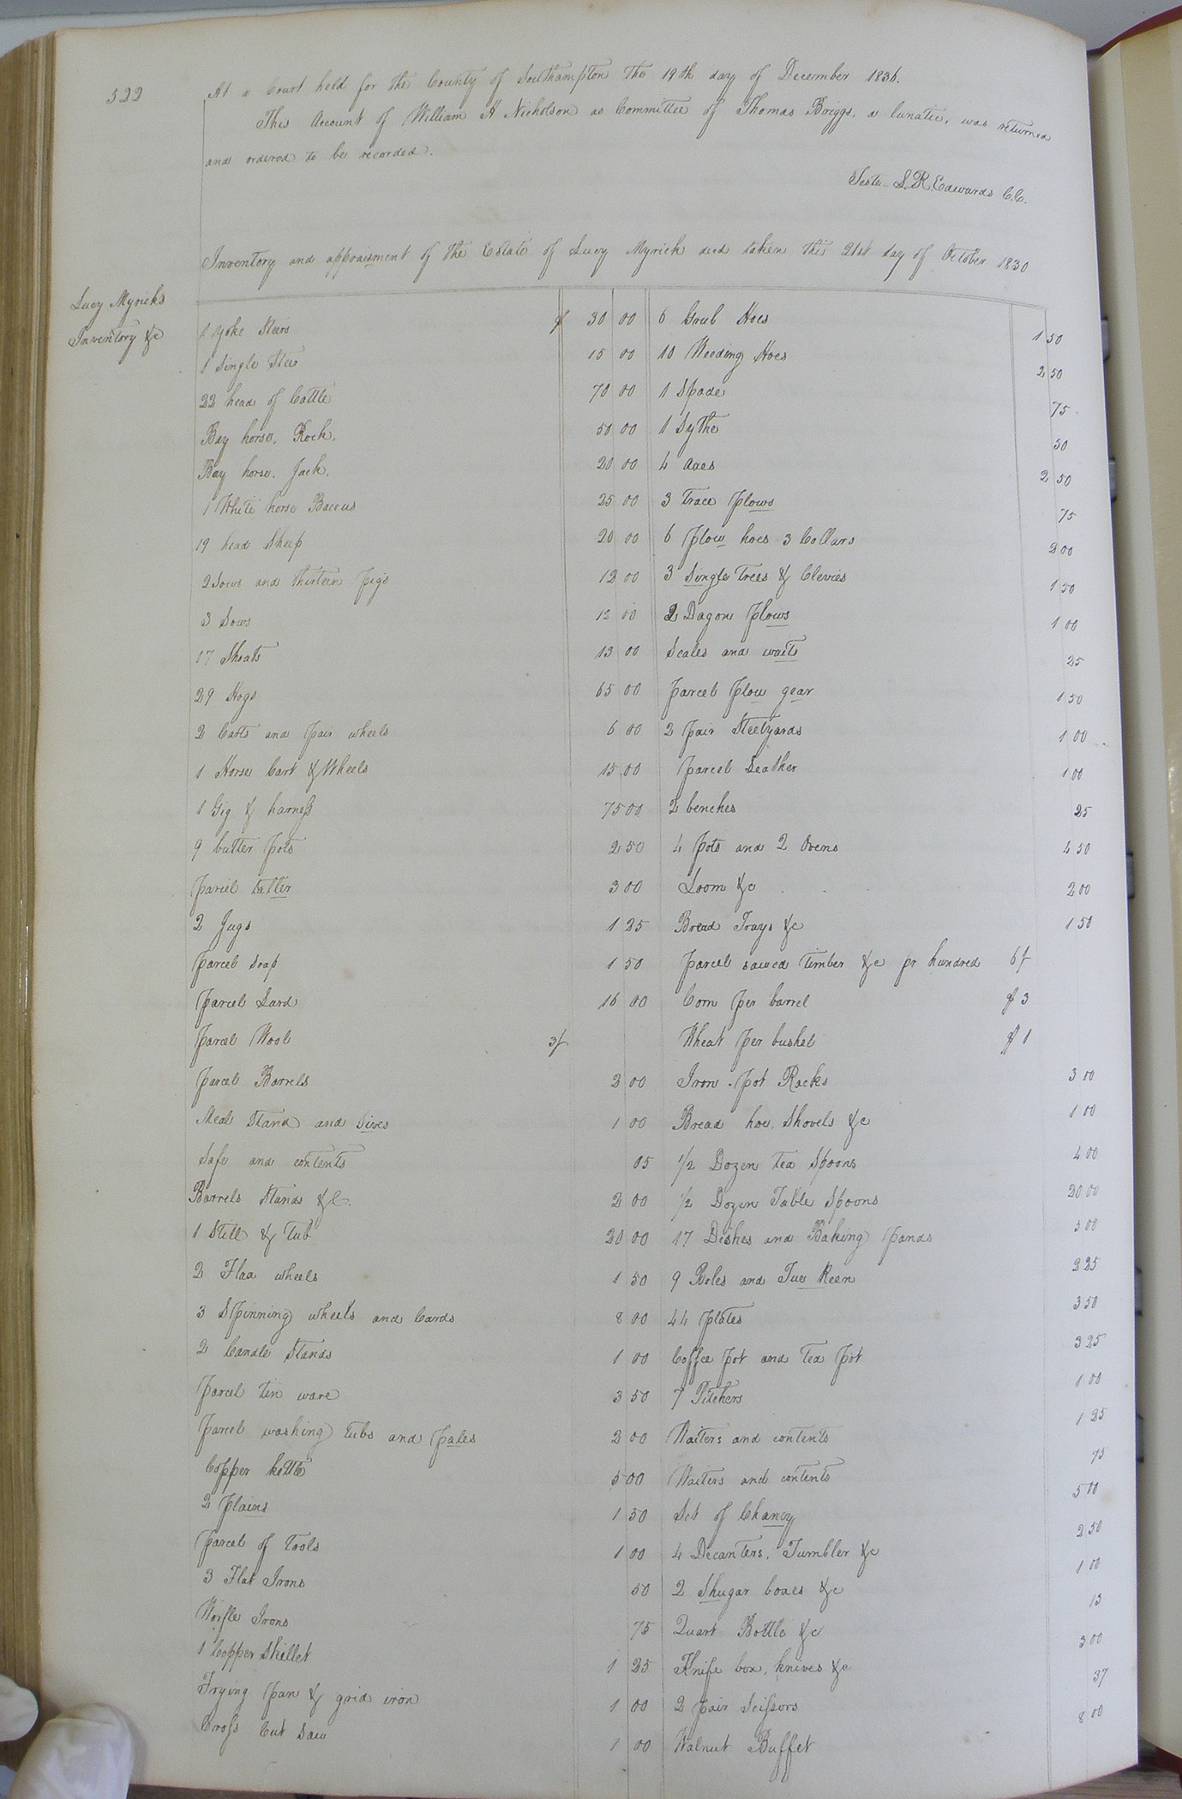 522
At a Court held for the County of Southampton the 19th day of December 1836.
This Account of William H Nicholson as Committee of Thomas Briggs, a lunatic, was returned
and ordered to be recorded.
Teste. L. R. Edwards C.C.
Inventory and appraisment of the Estate of Lucy Myrick decd taken this 21st day of October 1830
Lucy Myricks
Inventory &c
1 Yoke Steers $ 30 00
1 Single Steer 15 00
22 head of Cattle 70 00
Bay horse, Rock. 50 00
Bay horse. Jack. 20 00
1 White horse Baccus 25 00
19 head Sheep 20 00
2 Sows and thirteen pigs 12 00
3 Sows 12 00
17 Shoats 13 00
29 Hogs 65 00
2 Carts and pair wheels 6 00
1 Horse Cart & Wheels 15 00
1 Gig & harness 75 00
9 butter pots 2 50
parcel taller 3 00
2 Jugs 1 25
parcel Soap 1 50
parcel Lard 16 00
parcel Wool 3/
parcel Barrels 2 00
Meal Stand and Sives 1 00
Safe and contents 05
Barrels Stands &C. 2 00
1 Still & Tub 20 00
2 Flax wheels 1 50
3 Spinning wheels and Cards 8 00
2 Candle Stands 1 00
parcel tin ware 3 50
parcel washing tubs and pales 2 00
Copper kettle 5 00
2 plains 1 50
parcel of Tools 1 00
3 Flat Irons 50
Woffle Irons 75
1 Copper Skillet 1 25
Frying pan & grid iron 1 00
Cross Cut Saw 1 00
6 Grub Hoes 1 50
10 Weeding Hoes 2 50
1 Spade 75
1 Sythe 50
4 axes 2 50
3 Trace plows 75
6 plow hoes 3 Collars 2 00
3 Single Trees & Clevies 1 50
2 Dagon plows 1 00
Scales and waits 25
parcel plow gear 1 50
2 pair Steelyards 1 00
parcel Leather 1 00
2 benches 25
4 pots and 2 Ovens 4 50
Loom &c 2 00
Bread Trays &c 1 50
parcel sawed timber &c pr hundred 6/
Corn per barrel $ 3
Wheat per bushel $ 1
Iron pot Racks 3 00
Bread hoe, Shovels &c 1 00
1/2 Dozen tea Spoons 4 00
1/2 Dozen Table Spoons 20 00
17 Dishes and Baking pands 3 00
9 Boles and Tue Reen 2 25
44 plates 3 50
Coffee pot and tea pot 3 25
7 Pitchers 1 00
Waiters and contents 1 25
Waiters and contents 75
Set of Chancy 5 00
4 Decanters, Tumbler &c 2 50
2 Shugar boxes &c 1 00
Quart Bottle &c 13
Knife box, knives &c 3 00
2 pair Scissors 37
Walnut Buffet 8 00